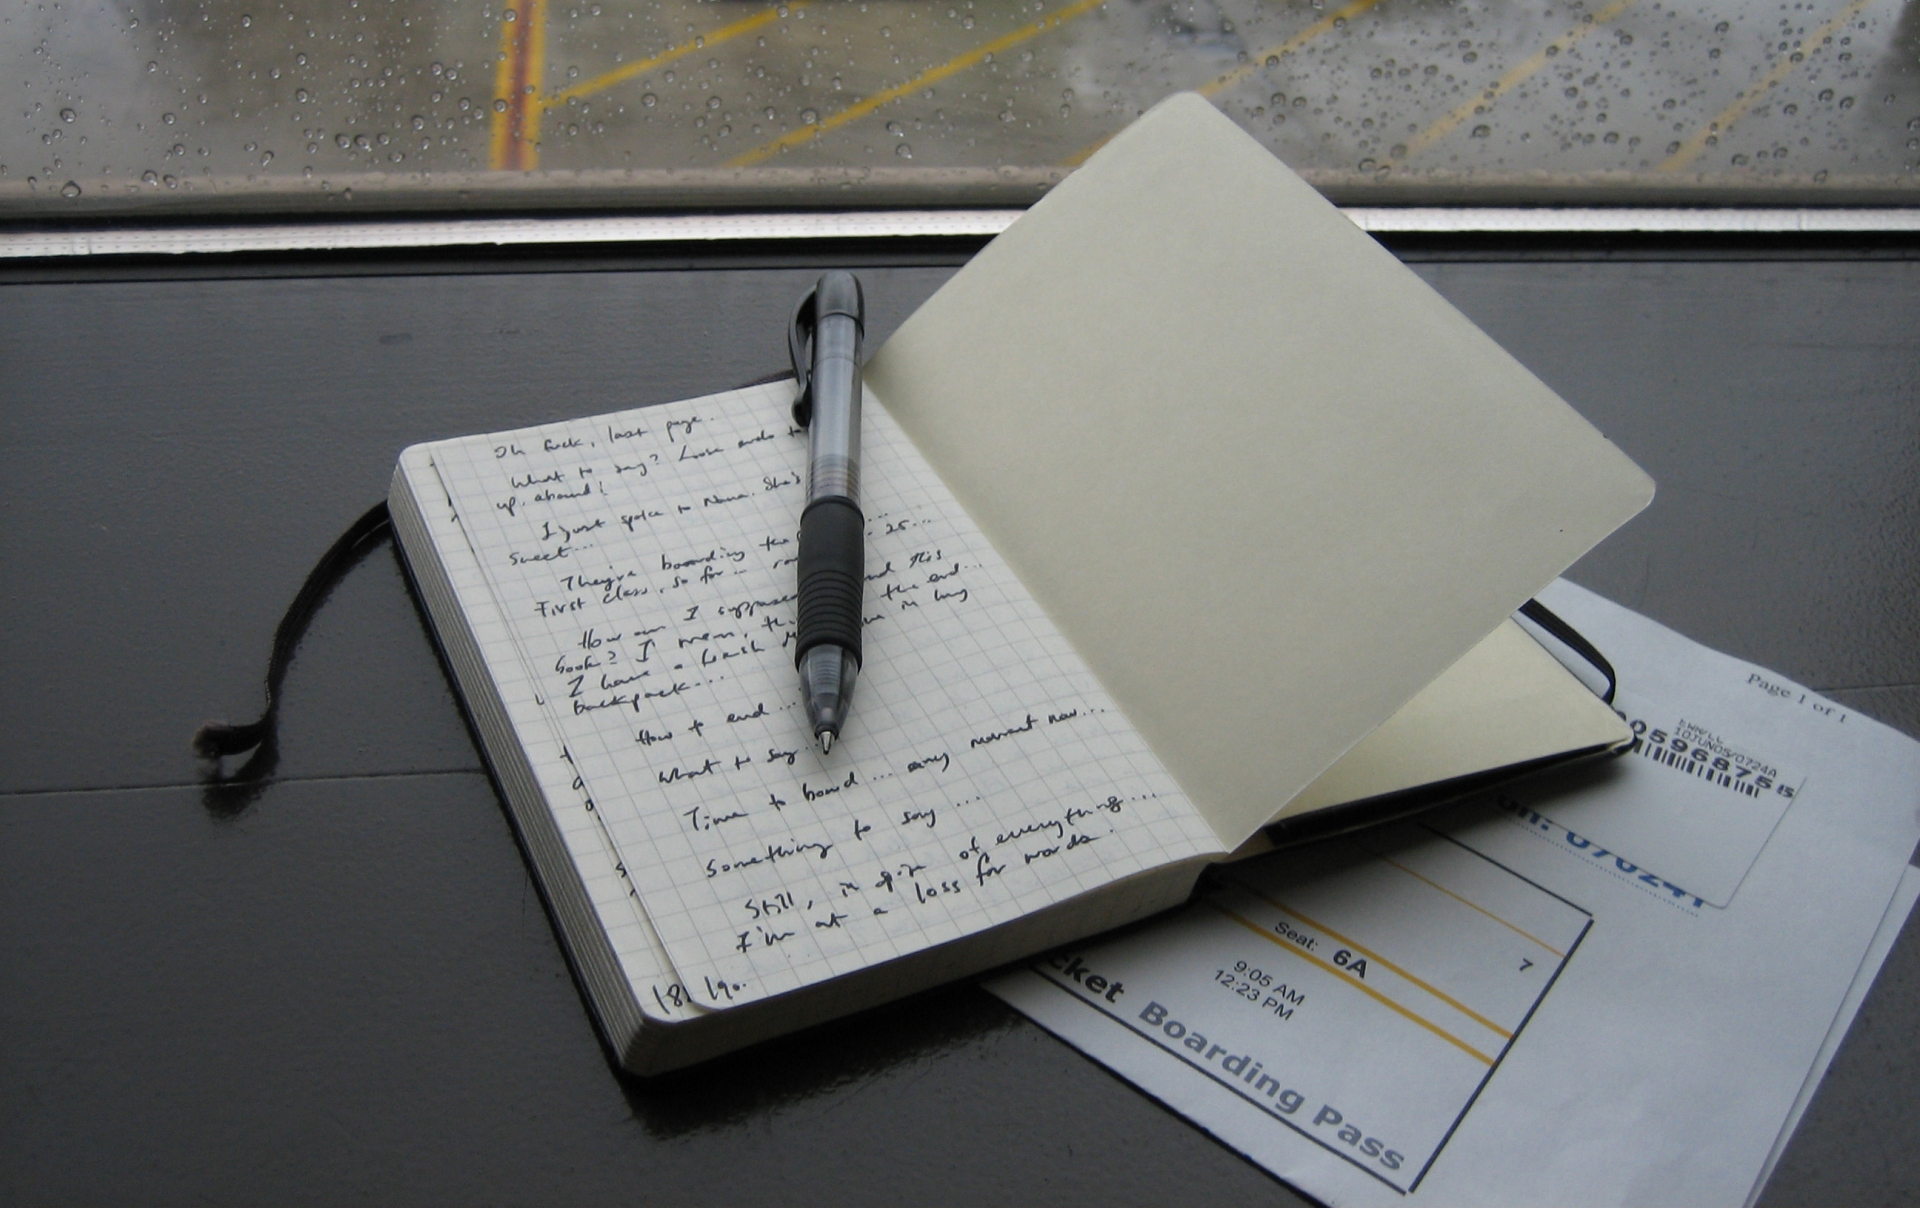 Oh fuck, last page.
What to say? Loose ends to
up, ahound?
I just spoke to Nana. She's
sweet...
They're boarding the ... 25...
First class, so for...
How am I suppose end this
book? I mean, the end...
I have a fresh in my
backpack...
How to end...
What to say
Time to board... any moment now...
Something to say ...
Still, in spite of everything...
I'm at a loss for words.
18 190.
Page 1 of 1
10JUN05/0724A
0596875 15
Seat: 6A
7
9:05 AM
12:23 PM
cket Boarding Pass